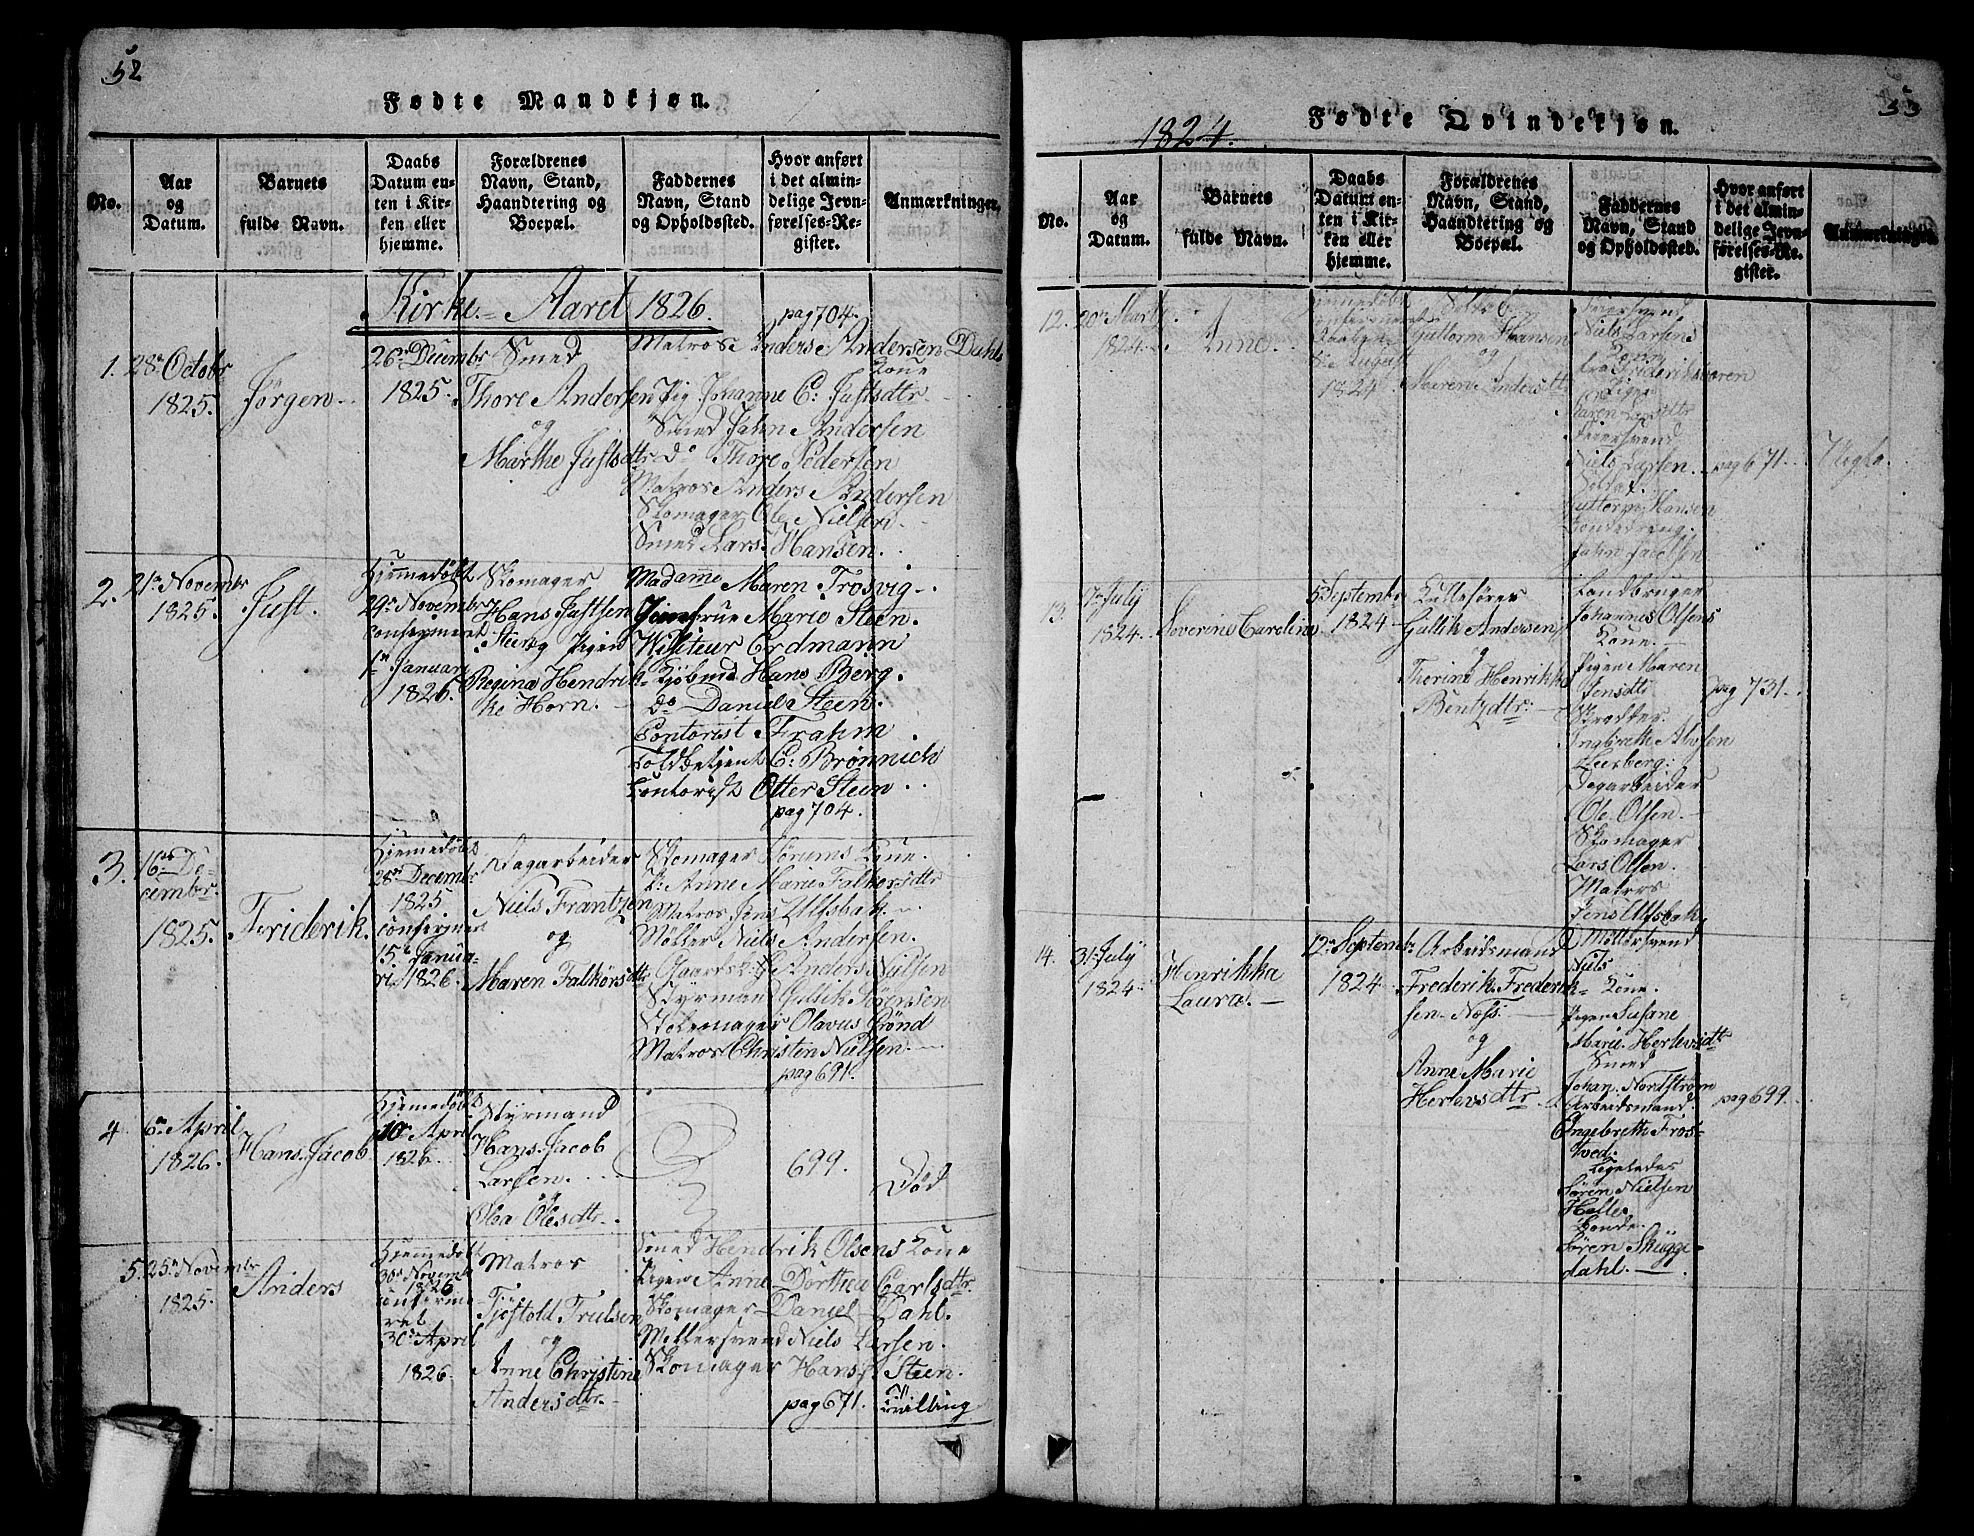 52
Fødte Mandkjøn.
No.
Aar
og
Datum.
Barnets
fulde Navn.
Daabs
Datum en-
ten i Kir-
ken eller
hjemme.
Forældrenes
Navn, Stand,
Haandtering og
Boepæl.
Faddernes
Navn, Stand
og Opholdssted.
Hvor anført
i det almin-
delige Jevn-
førelses-Re-
gister.
Anmærkninger.
Kirke-Aaret 1826.
1.
28de Octobr
1825.
Jørgen
26de Decembr
1825.
Smed
Thore Andersen
og
Marthe Justsdtr
Matros Anders Andersen Dahls
Kone
Pig Johanne C: Justsdtr
Smed Jahn Andersen
do Thore Pedersen
Matros Anders Andersen
Skomager Ole Nielsen
Smed Lars Hansen.
pag 704.
2.
21de Novembr
1825.
Just.
Hjemmedøbt
29de Novembr
confirmert
1ste Januari
1826.
Skomager
Hans Justsen
Steen og Pigen
Regina Hendrik-
ke Horn.
Madamme Maren Trosvig
Jomfrue Marie Steen.
Erdmann
Kjøbmd Hans Berg.
do Daniel Steen.
Contorist Frahm
Toldbetjent C: Brønnich
Contorist Otter Steen
pag 704.
3.
16de De-
cembr
1825.
Friderik.
Hjemedøbt
28de Decembr
1825
confirmert
15de Janua-
ri 1826.
Dagarbeider
Niels Frantzen
og
Maren Falkorsdtr
Skomager Sørums Kone.
P: Anne Marie Falkorsdtr
Matros Jens Ulfsbak
Møller Niels Andersen.
Gaards: Anders Nielsen
Styrmand Gullik Sørensen
Stolemager Olavus Grønd
Matros Christen Nielsen.
pag 691.
4
6te April
1826.
Hans Jacob
Hjemedøbt
10de April
1826.
Styrmand
Hans Jacob
Larsen.
og
Oba Olesdtr.
699.
Død
5.
25de Novembr
1825.
Anders
Hjemedøbt
30te Novembr
1826
confirme-
ret
30te April
1826.
Matros
Tjøstold Trulsen
og
Anne Christine
Andersdtr.
Smed Hendrik Olsens Kone
Pigen Anne Dorthea Carlsdtr.
Skomager Daniel Dahl.
Møllersvend Niels Larsen.
Skomager Hans Steen.
pag 671.
Tvilling
53
1824.
Fødte Qvindekjøn.
No.
Aar
og
Datum.
Barnets
fulde Navn.
Daabs
Datum en-
ten i Kir-
ken eller
hjemme.
Forældrenes
Navn, Stand,
Haandtering og
Boepæl.
Faddernes
Navn, Stand
og Opholdssted.
Hvor anført
i det almin-
delige Jevn-
førelses-Re-
gister.
Anmærkninger.
12.
20de Marts
1824
Anne
Hjemedøbt
confirmert
1824
Soldat
Guttorm Hansen
og
Maren Andersdtr
Feiersvend
Niels Larsens
Kone
fra Frideriksværen
Pigen
Karen
Feiersvend
Niels Larsen.
Soldat
Guttorm Hansen
Bondedreng.
Jahn Jacobsen
pag 671.
Uægte.
13.
7de July
1824
Severine Caroline
5te Septembr
1824
Kullefører
Gullik Andersen
og
Thorine Henrikke
Bentzdtr.
Landbruger
Johannes Olsens
Kone.
Pigen Maren
Jensdtr
Skrædder
Ingebreth Alvsen
Leerberg:
Dagarbeider
Ole Olsen.
Skomager
Lars Olsen.
Matros
Jens Ulfsbak
pag 731.
14.
31te July
1824
Henrikka
Laura.
12te Septembr
1824
Arbeidsmand
Frederik Frederik-
sen Næss.
og
Anne Marie
Herlevsdtr
Møllersvend
Niels
Kone.
Pigen Susane
Marie Herlevsdtr
Smed
Johan Nordstrøm
Arbeidsmand.
Engebreth Fros-
tved.
Ligeledes
Søren Nielsen
Helle
Bonde.
Søren Skugge-
dahl.
pag 699.